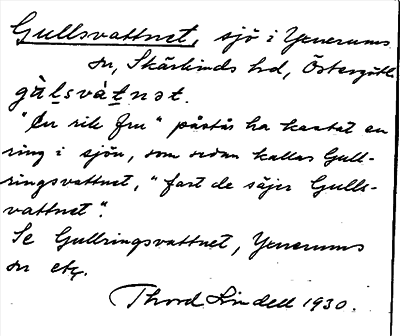 Gullsvattnet, sjö i Yxnerums
sn, Skärkinds hd, Östergötl.
gùl̠svàt̠nət.
"En rik fru" påstås ha kastat en
ring i sjön, som sedan kallas Gull-
ringsvattnet, "fast de säjer Gulls-
vattnet".
Se Gullringsvattnet, Yxnerums
sn etc.
Thord Lindell 1930.